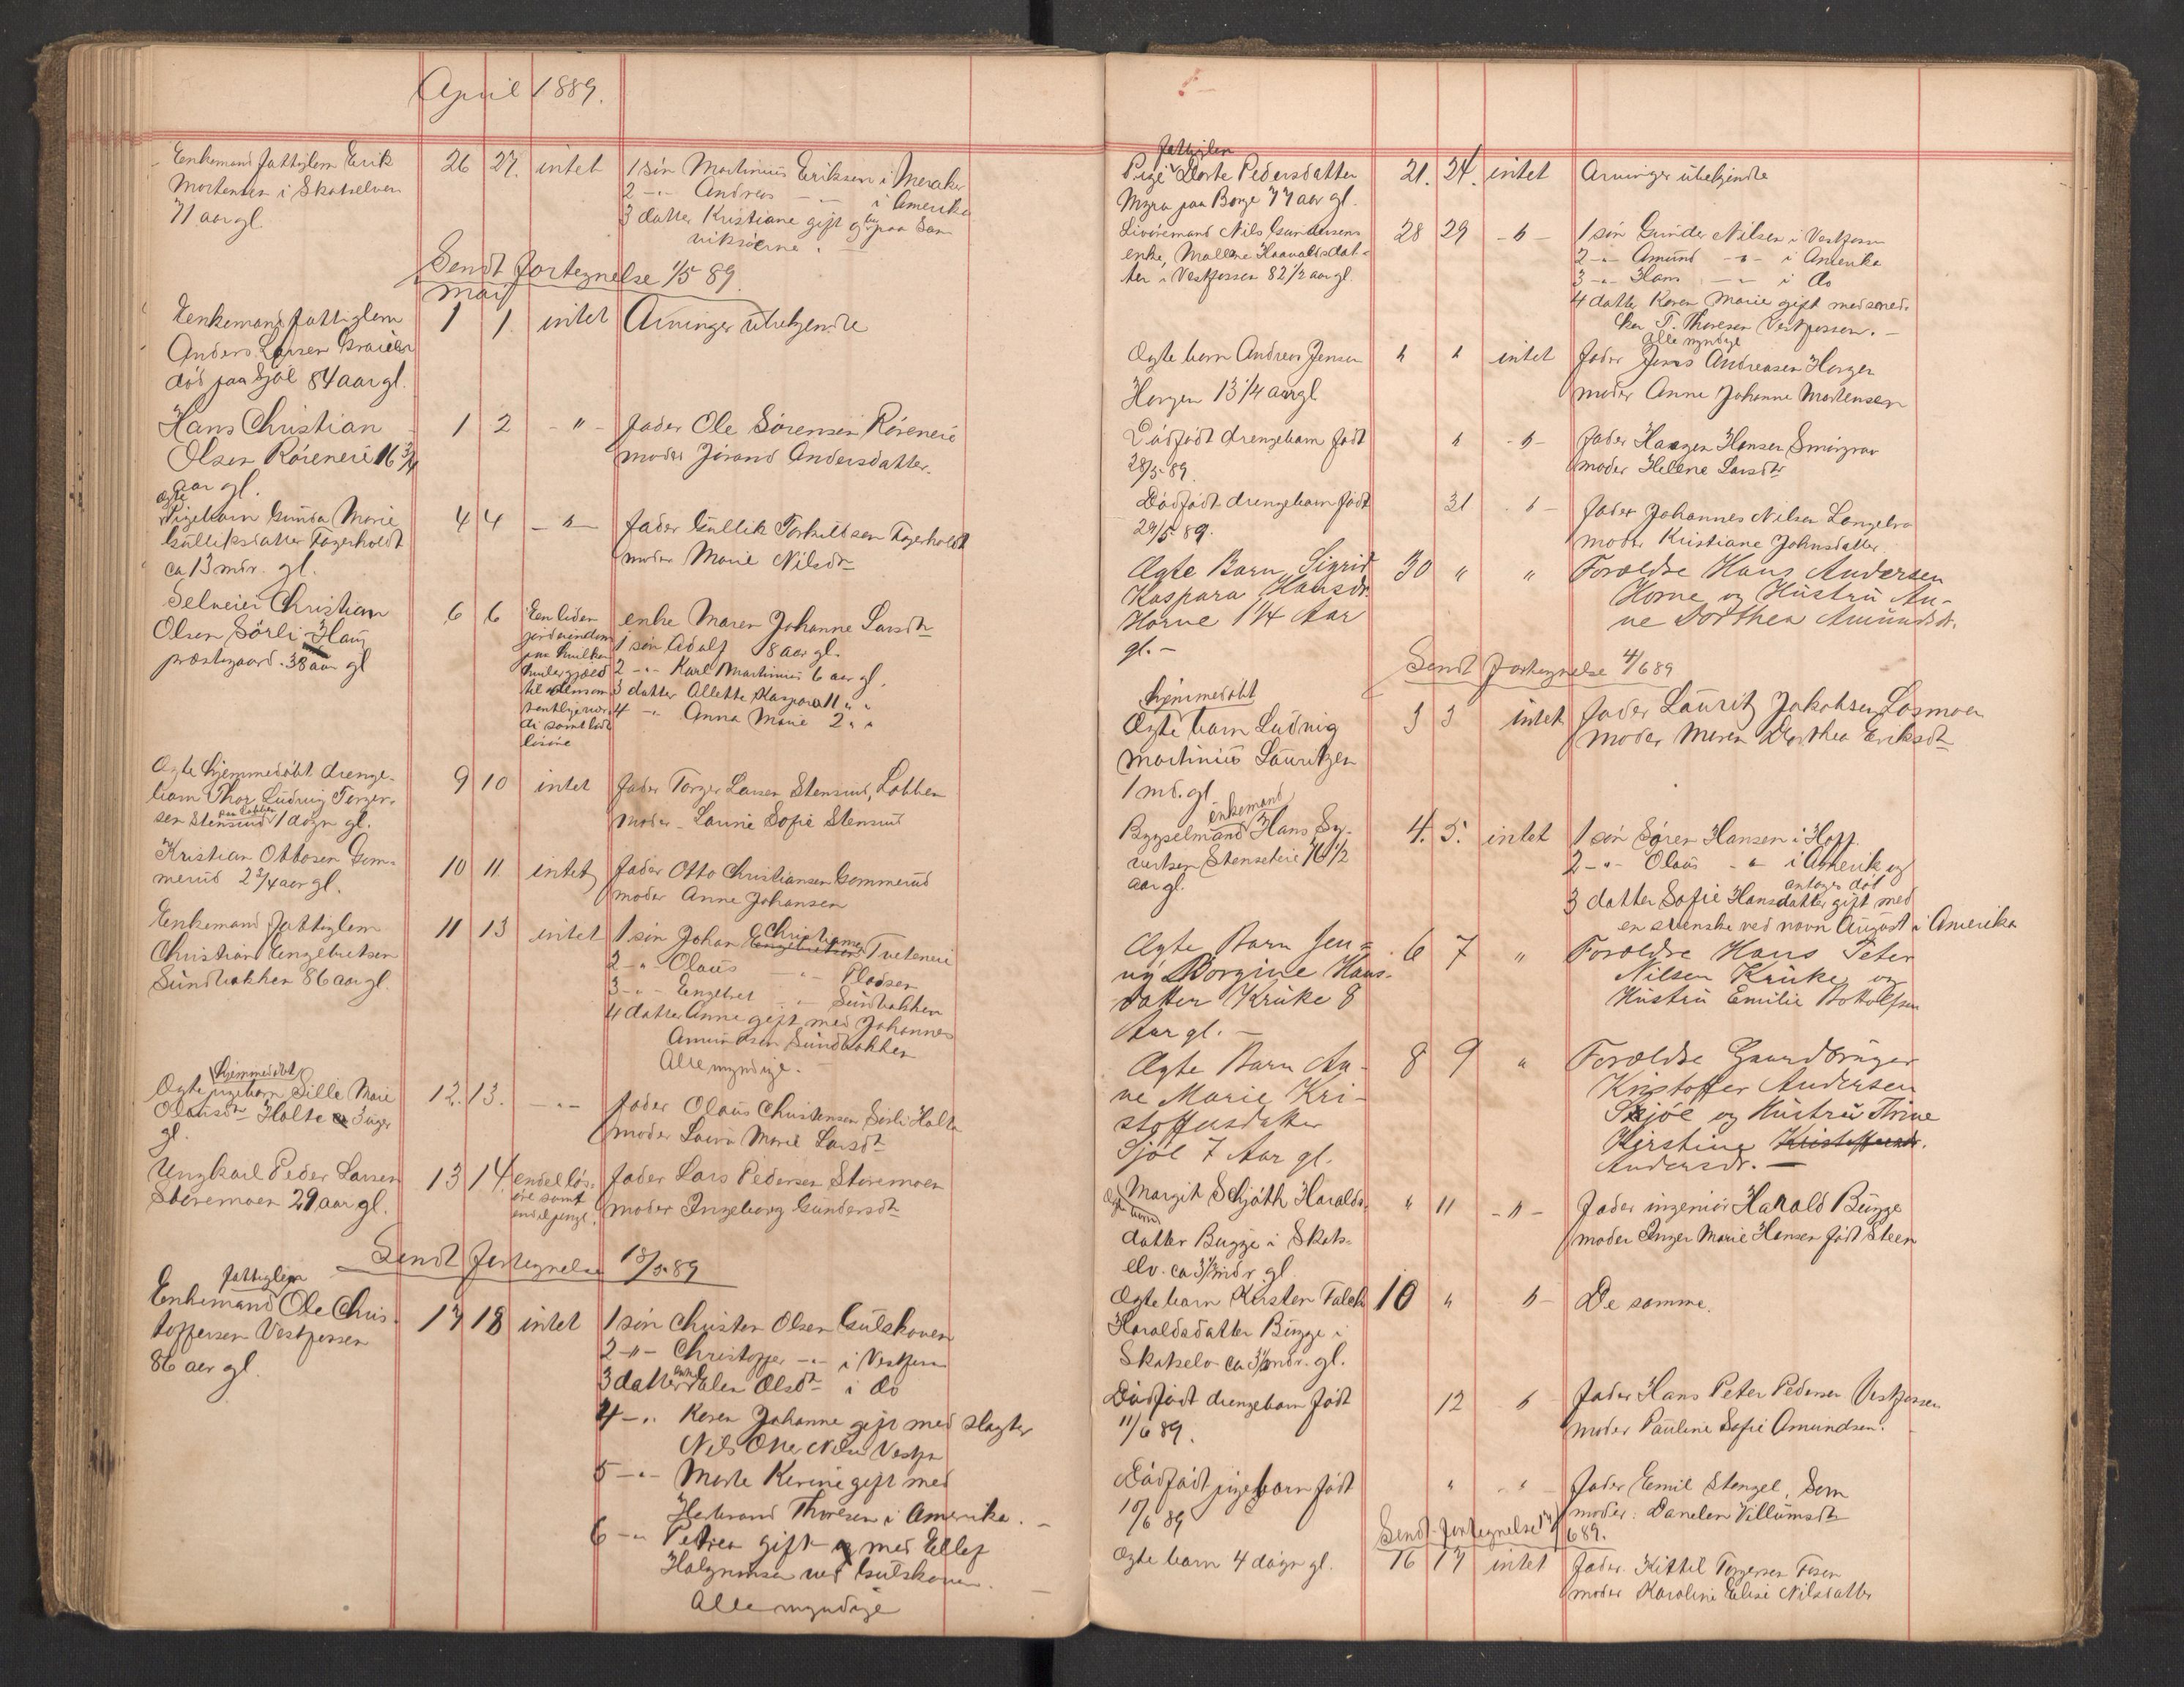 April 1889.
Enkemand fattiglem Erik 26 27. intet 1 søn Martinius Eriksen i Meraker
Mortensen i Skotselven 2 -"- Andreas -"- i Amerika
71 aar gl. 3 datter Kristiane gift
Sendt fortegnelse 1/5 89
mai
Eenkemand fattiglem 1 1. intet Arvinger ubekjendte
Anders Larsen
død paa Sjøl 84 aar gl.
Hans Christian 1 2 -"- fader Ole Sørensen Røreneie
Olsen Røreneie 16 3/4 moder Jørand Andersdatter.
aar gl.
Ægte
Pigebarn Gunda Marie 4 4 -"- fader Gullik Torkildsen Fagerholdt
Gulliksdatter Fagerholdt moder Marie Nilsdtr
ca 13 mdr. gl.
Selveier Christian 6 6 Een liden enke Maren Johanne Larsdtr
Olsen Sørli Haug jordeiendom 1 søn Adolf 8 aar gl.
præstegaard. 38 aar gl paa hvilken 2 -"- Karl Martinius 6 aar gl.
hviler gjæld 3 datter Allette Kaspara 11 " "
til 4 -"- Anna Marie 2 " "
di samt lidt
løsøre
Ægte hjemmedøbt drenge- 9 10 intet fader Torger Larsen Stensrud, Lobben
barn Thor Ludvig Torger- moder - Laurine Sofie Stensrud
sen Stensrud paa Lobben 1 døgn gl.
Kristian Ottosen Gom- 10 11 intet fader Otto Christiansen Gommerud
merud 2 3/4 aar gl. moder Anne Johansen
Eenkemand fattiglem 11 13 intet 1 søn Johan Engebretsen Christiansen Tveteneie
Christian Engebretsen 2 -"- Olaus -"- Pladsen
Sundbakken 86 aar gl. 3 -"- Eengebret -"- Sundbakken
4 datter Anne gift med Johannes
Amundsen Sundbakken
Alle myndige.
hjemmedøbt
Ægte pigebarn Sille Marie 12. 13. -"- fader Olaus Christensen Sørli Holte
Olausdtr Holte 3 uger moder Laura Marie Larsdtr
gl.
Ungkarl Peder Larsen 13 14. endel løs- fader Lars Pedersen Støremoen
Støremoen 29 aar gl. øre samt moder Ingeborg Gundersdtr
endel penge.
Sendt fortegnelse 18/5 89
fattiglem
Enkemand Ole Chris- 17 18 intet 1 søn Christen Olsen Gulskoven
toffersen Vestfossen 2 -"- Christoffer -"- i Vestfossen
86 aar gl. 3 datter Olsdtr i do
4 -"- Karen Johanne gift med slagter
Nils Otto Nilsen Vestfn
5 -"- Marte Kirine gift med
Halvrand Thoresen i Amerika. -
6 -"- Petrea gift med Ellef
Halgrimsen ved Gulskoven. -
Alle myndige
fattiglem
Pige Dorte Pedersdatter 21. 24. intet Arvinger ubekjendte
Myra paa Borge 77 aar gl.
Livøremand Nils Gundersens 28 29 -"- 1 søn Gunder Nilsen i Vestfossen
enke, Mallene Haavaldsdat- 2 -"- Amund -"- i Amerika
ter i Vestfossen 82 1/2 aar gl. 3 -"- Hans -"- i do
4 datter Karen Marie gift med sned-
ker T. Thoresen Vestfossen. -
Alle myndige
Ægte barn Andreas Jensen " " intet fader Jens Andreasen Horgen
Horgen 13 1/4 aar gl moder Anne Johanne Mortensen
Dødfødt drengebarn født " -"- fader Haagen Hansen Smørgrav
28/5 89. moder Helene Larsdtr
Dødfødt drengebarn født 31 -"- fader Johannes Nilsen Langebro
29/5 89. moder Kristiane Johnsdatter
Ægte Barn Sigrid 30 " " Forældre Hans Andersen
Kaspara Hansdr. Horne og Hustru An-
Horne 1 1/4 Aar ne Dorthea Amundsdr.
gl. -
Sendt fortegnelse 4/6 89
hjemmedøbt
Ægte barn Ludvig 3 3 intet fader Lauritz Jakobsen Losmoen
Martinius Lauritzen moder Maren Dorthea Eriksdtr
1 md. gl
enkemand
Bygselmand Hans Sy- 4. 5. intet 1 søn Søren Hansen i Hoff.
vertsen Stenseteie 76 1/2 2 -"- Olaus -"- i Amerika og
aar gl. antages død
3 datter Sofie Hansdatter gift med
en svenske ved navn August i Amerika
Ægte Barn Jen- 6 7 " Forældre Hans Peter
ny Borgine Hans- Nilsen Kruke og
datter Kruke 8 Hustru Emilie Bottolfsen
Aar gl. -
Ægte Barn An- 8 9 " Forældre Gaardbruger
ne Marie Kri- Kristoffer Andersen
stoffersdatter Sjøl og Hustru Trine
Sjøl 7 Aar gl. Kjerstine Kristoffersdr.
Andersdr. -
Ægte barn
Margit Schjøth Haralds- " 11 -"- fader ingeniør Harald Bugge
datter Bugge i Skots- moder Inger Marie Hansen født Steen
elv. ca 3 1/2 mdr. gl
Ægte barn Kirsten Falch 10 " -"- De samme.
Haraldsdatter Bugge i
Skotselv ca 3 1/2 mdr. gl.
Dødfødt drengebarn født 12 " fader Hans Peter Pedersen Vestfossen
11/6 89. moder Pauline Sofie Amundsen.
Dødfødt pigebarn født " " fader Eemil Stengel, Sem
10/6 89 moder: Danelen Villumsdtr
Sendt fortegnelse 14/6 89.
Ægte barn 4 døgn gl. 16 17 intet fader Kittil Torgersen Fosen
moder Karoline Eelise Nilsdatter